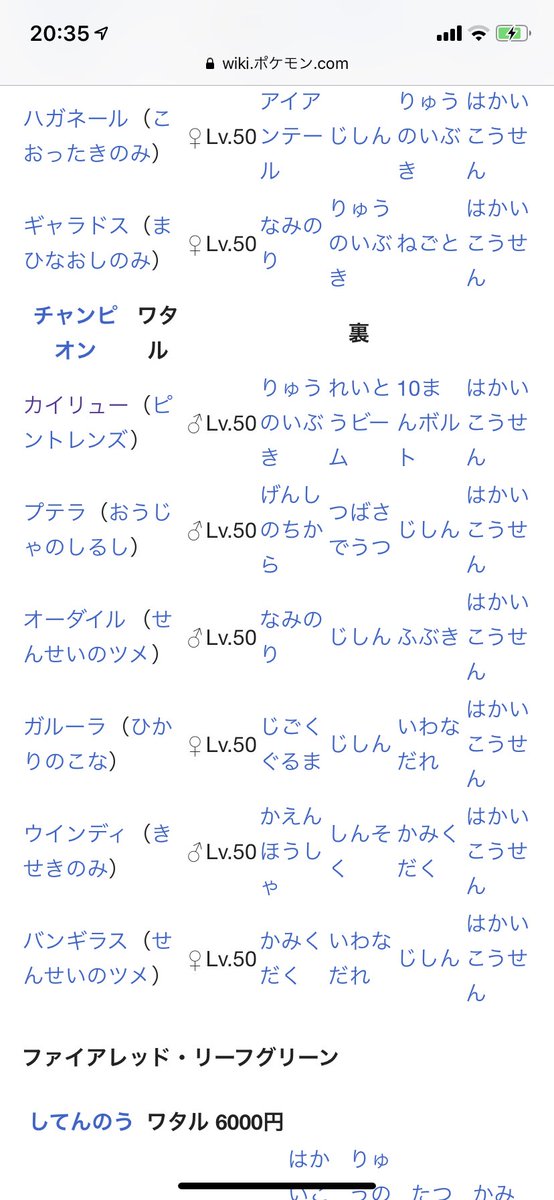 20:35
wiki.ポケモン.com
ハガネール（こ
おったきのみ）
♀Lv.50
アイア
ンテー
ル
じしん
りゅう
のいぶ
き
はかい
こうせ
ん
ギャラドス（ま
ひなおしのみ）
♀Lv.50
なみの
り
りゅう
のいぶ
き
ねごと
はかい
こうせ
ん
チャンピ
オン
ワタ
ル
裏
カイリュー（ピ
ントレンズ）
♂Lv.50
りゅう
のいぶ
き
れいと
うビー
ム
10ま
んボル
ト
はかい
こうせ
ん
プテラ（おうじ
ゃのしるし）
♂Lv.50
げんし
のちか
ら
つばさ
でうつ
じしん
はかい
こうせ
ん
オーダイル（せ
んせいのツメ）
♂Lv.50
なみの
り
じしん
ふぶき
はかい
こうせ
ん
ガルーラ（ひか
りのこな）
♀Lv.50
じごく
ぐるま
じしん
いわな
だれ
はかい
こうせ
ん
ウインディ（き
せきのみ）
♂Lv.50
かえん
ほうし
ゃ
しんそ
く
かみく
だく
はかい
こうせ
ん
バンギラス（せ
んせいのツメ）
♀Lv.50
かみく
だく
いわな
だれ
じしん
はかい
こうせ
ん
ファイアレッド・リーフグリーン
してんのう ワタル 6000円
はか
いこ
りゅ
うの
たつ
かみ